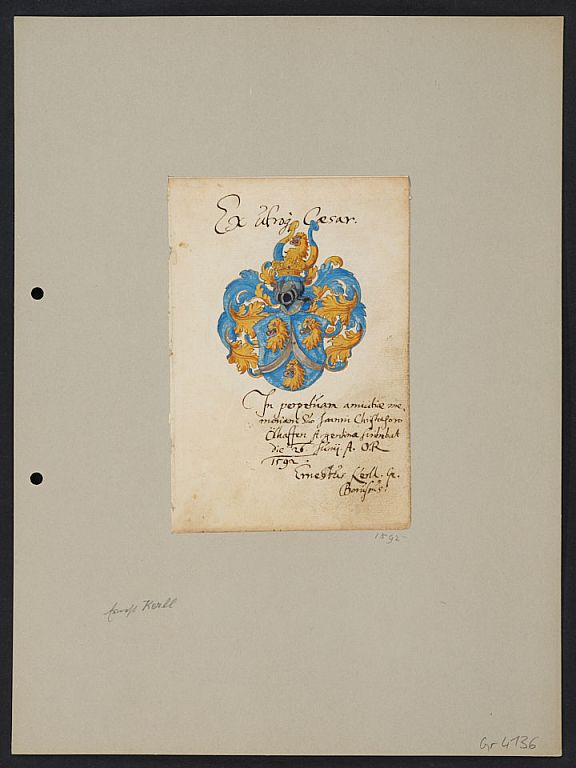 Ex utroq Cæsar.
In perpetuam amicitiæ me-
moriam Suo Joanni Christophoro
Argentinæ scribebat
die 26 Junij A. O. R
1592.
Ernestus Kerll. Ge.
Borussus.
1592
Ernst Kerll
Gr 4136